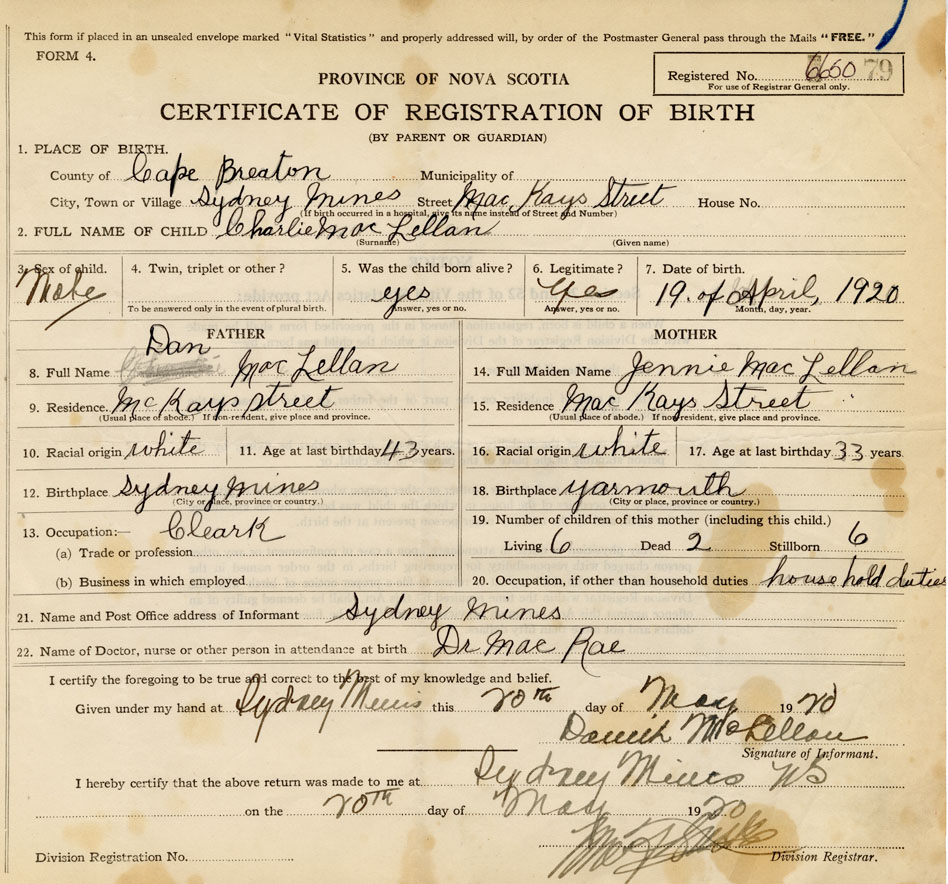 This form if placed in an unsealed envelope marked "Vital Statistics" and properly addressed will, by order of the Postmaster General pass through the Mails "FREE."
FORM 4.
Registered No. 6650 79
For use of Registrar General only.
PROVINCE OF NOVA SCOTIA
CERTIFICATE OF REGISTRATION OF BIRTH
(BY PARENT OR GUARDIAN)
1. PLACE OF BIRTH.
County of Cape Breaton Municipality of
City, Town or Village Sydney Mines Street Mac Kays Street House No.
(If birth occurred in a hospital, give its name instead of Street and Number)
2. FULL NAME OF CHILD Charlie Mac Lellan
(Surname) (Given name)
3. Sex of child. 4. Twin, triplet or other? 5. Was the child born alive? 6. Legitimate? 7. Date of birth.
Male yes Yes 19. of April, 1920
To be answered only in the event of plural birth. Answer, yes or no. Answer, yes or no. Month, day, year.
FATHER MOTHER
8. Full Name Dan Mac Lellan 14. Full Maiden Name Jennie Mac Lellan
9. Residence. Mc Kays street 15. Residence Mac Kays Street
(Usual place of abode.) If non-resident, give place and province. (Usual place of abode.) If non-resident, give place and province.
10. Racial origin white 11. Age at last birthday 43 years. 16. Racial origin white 17. Age at last birthday 33 years.
12. Birthplace Sydney Mines 18. Birthplace yarmouth
(City or place, province or country.) (City or place, province or country.)
13. Occupation:— Cleark 19. Number of children of this mother (including this child.)
(a) Trade or profession Living 6 Dead 2 Stillborn 6
(b) Business in which employed 20. Occupation, if other than household duties house hold duties
21. Name and Post Office address of Informant Sydney Mines
22. Name of Doctor, nurse or other person in attendance at birth Dr Mac Rae
I certify the foregoing to be true and correct to the best of my knowledge and belief.
Given under my hand at Sydney Mines this 20th day of May 1920
McLellan
Signature of Informant.
I hereby certify that the above return was made to me at Sydney Mines
on the 20th day of May 1920
Division Registration No. Division Registrar.